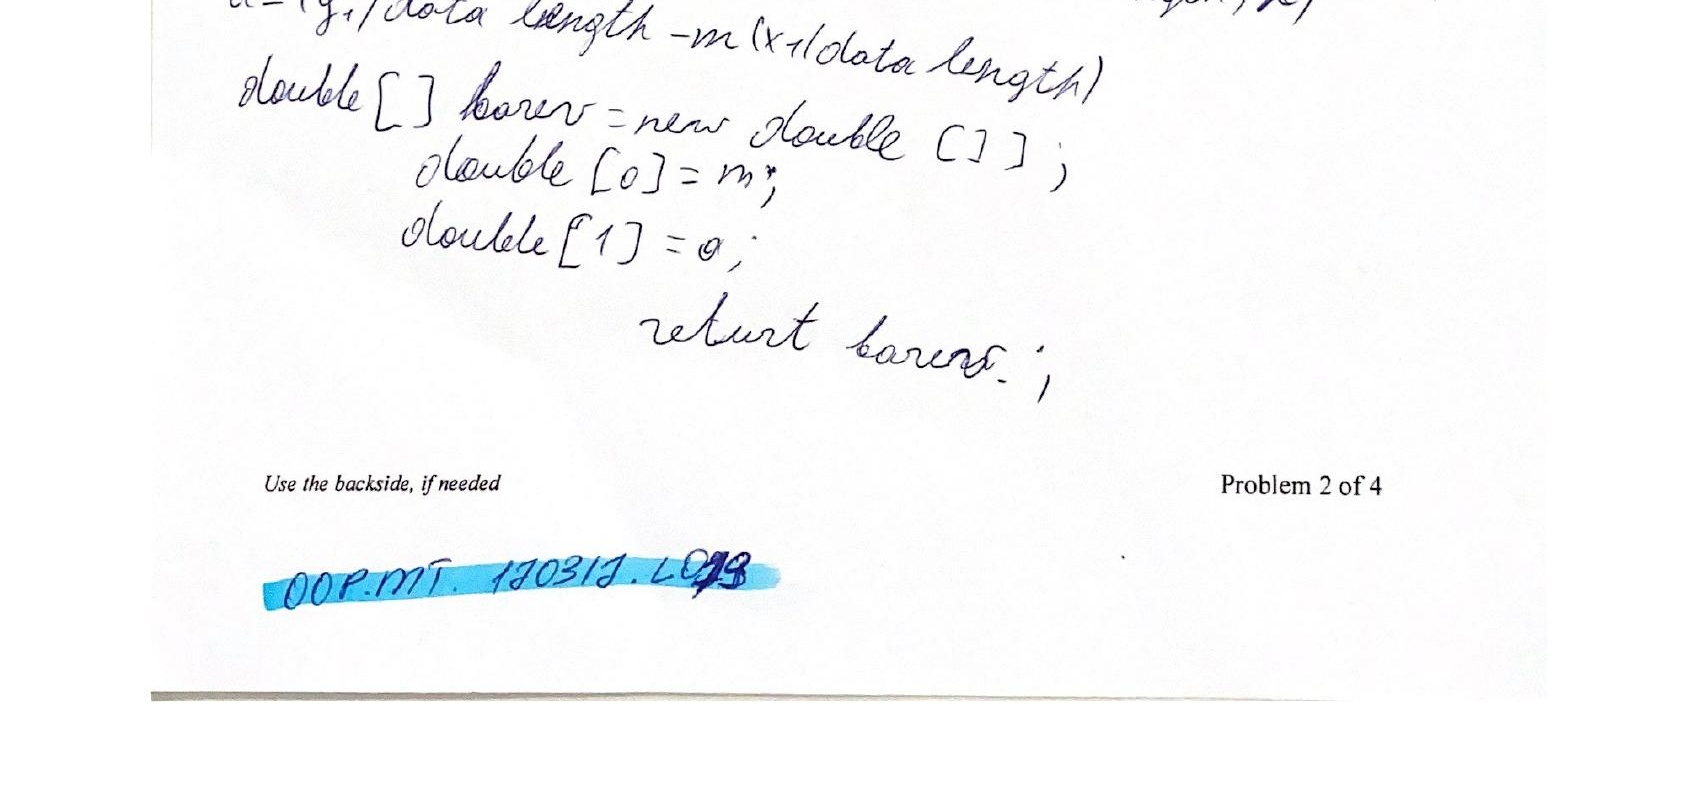 data length - m (x1/data length)
double [ ] barev = new double [ ] ] ;
double [0] = m;
double [1] = a;
returt barev. ;
Use the backside, if needed
Problem 2 of 4
OOP.MT.